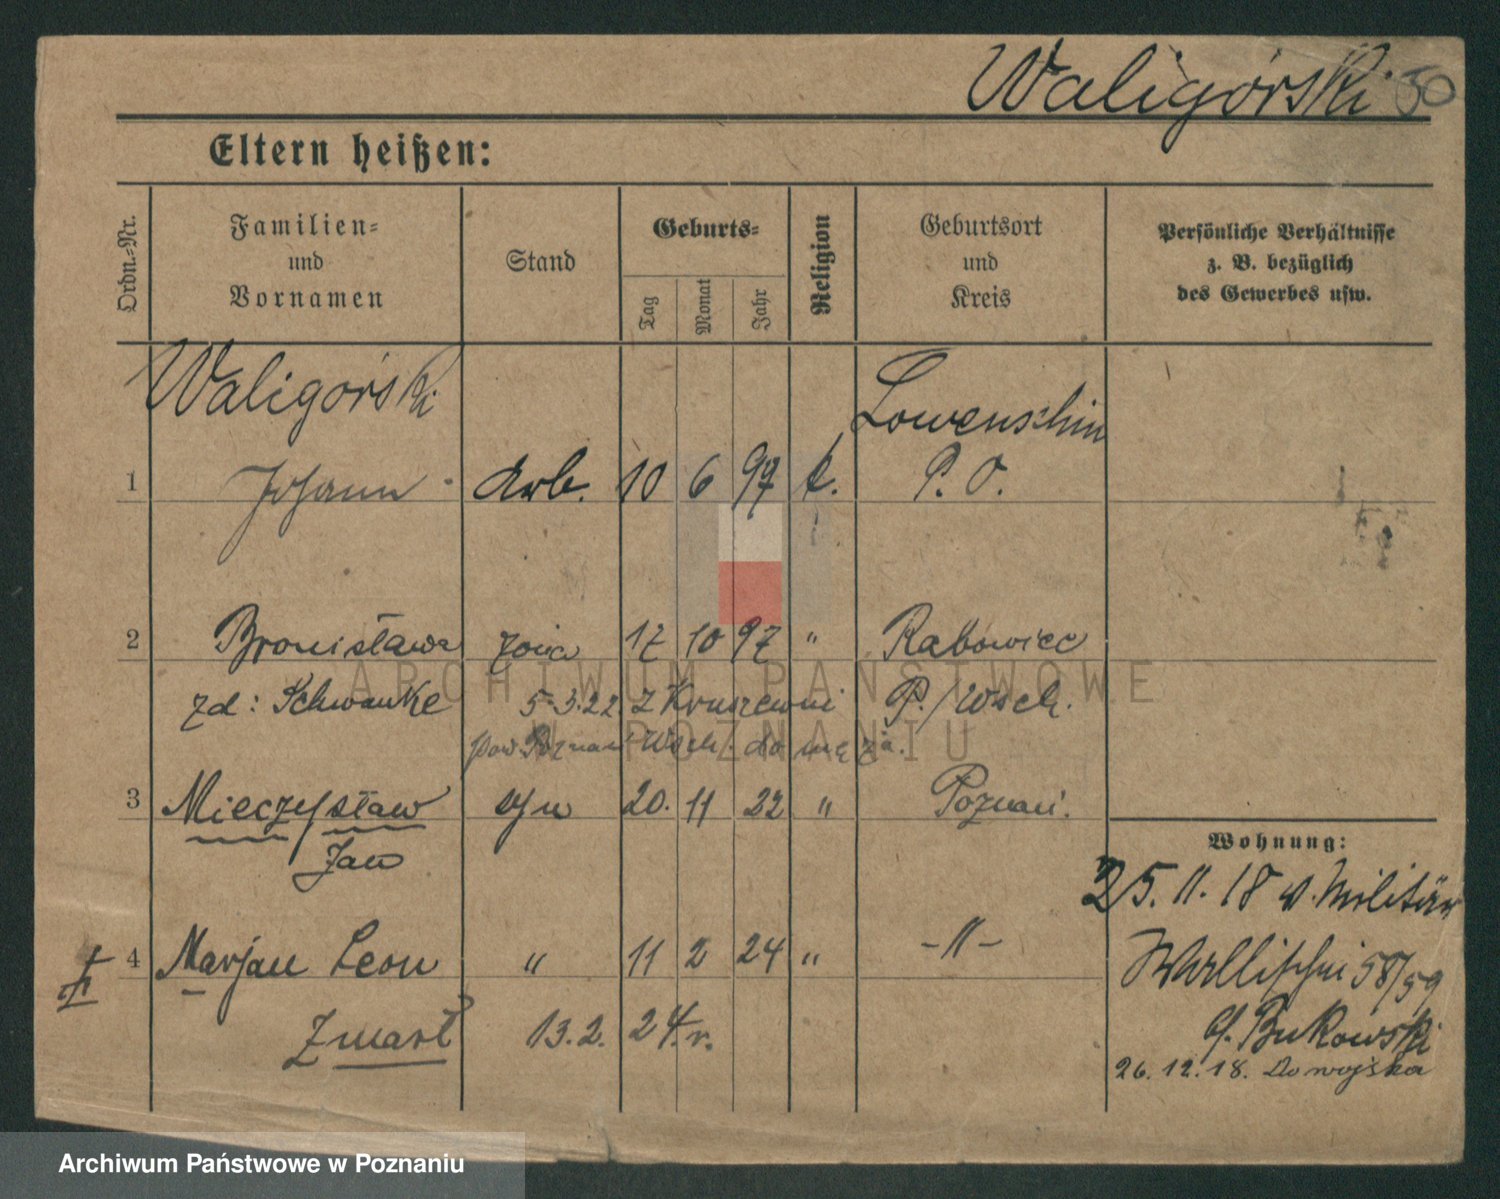 Waligórski 50
Eltern heißen:
Ordn.-Nr.
Familien-
und
Vornamen
Stand
Geburts-
Tag
Monat
Jahr
Religion
Geburtsort
und
Kreis
Persönliche Verhältnisse
z. B. bezüglich
des Gewerbes usw.
Waligórski Lowenschin
1 Johann Arb. 10 6 97 k. P. O.
2 Bronisława żona 17 10 97 " Rabowiec
zd: Schwanke 5.3.22 z Kruszewni P./Wsch.
pow Poznań Wsch. do męża.
3 Mieczysław syn 20. 11 22 " Poznań.
Jan
Wohnung:
25.11.18 v. Militär
4 Marjan Leon " 11 2 24 " -"-
Wallischei 58/59
Zmarł 13.2. 24.r.
b/ Bukowski
26.12.18. Do wojska
ARCHIWUM PAŃSTWOWE
W POZNANIU
Archiwum Państwowe w Poznaniu